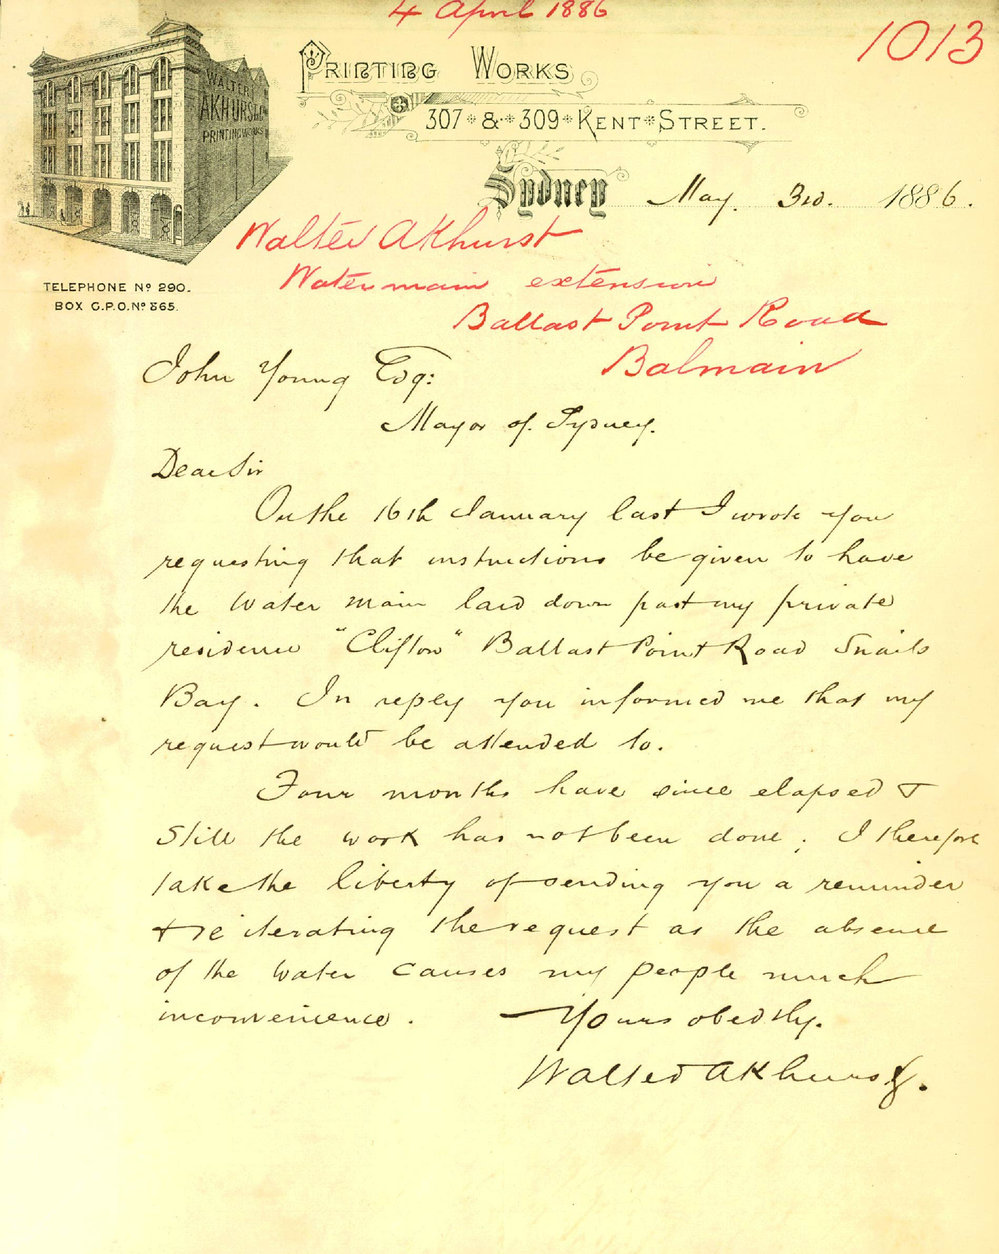 4 April 1886
1013
WALTER
AKHURST
PRINTING WORKS
PRINTING WORKS
307 & 309 KENT STREET.
Sydney May. 3rd. 1886.
Walter Akhurst
Water main extension
Ballast Point Road
Balmain
TELEPHONE No 290.
BOX G.P.O. No 865.
John Young Esq:
Mayor of Sydney.
Dear Sir
On the 16th January last I wrote you
requesting that instructions be given to have
the Water Main laid down past my private
residence "Clifton" Ballast Point Road Snails
Bay. In reply you informed me that my
request would be attended to.
Four months have since elapsed &
still the work has not been done; I therefore
take the liberty of sending you a reminder
& reiterating the request as the absence
of the Water causes my people much
inconvenience.
Yours obedtly.
Walter Akhurst.